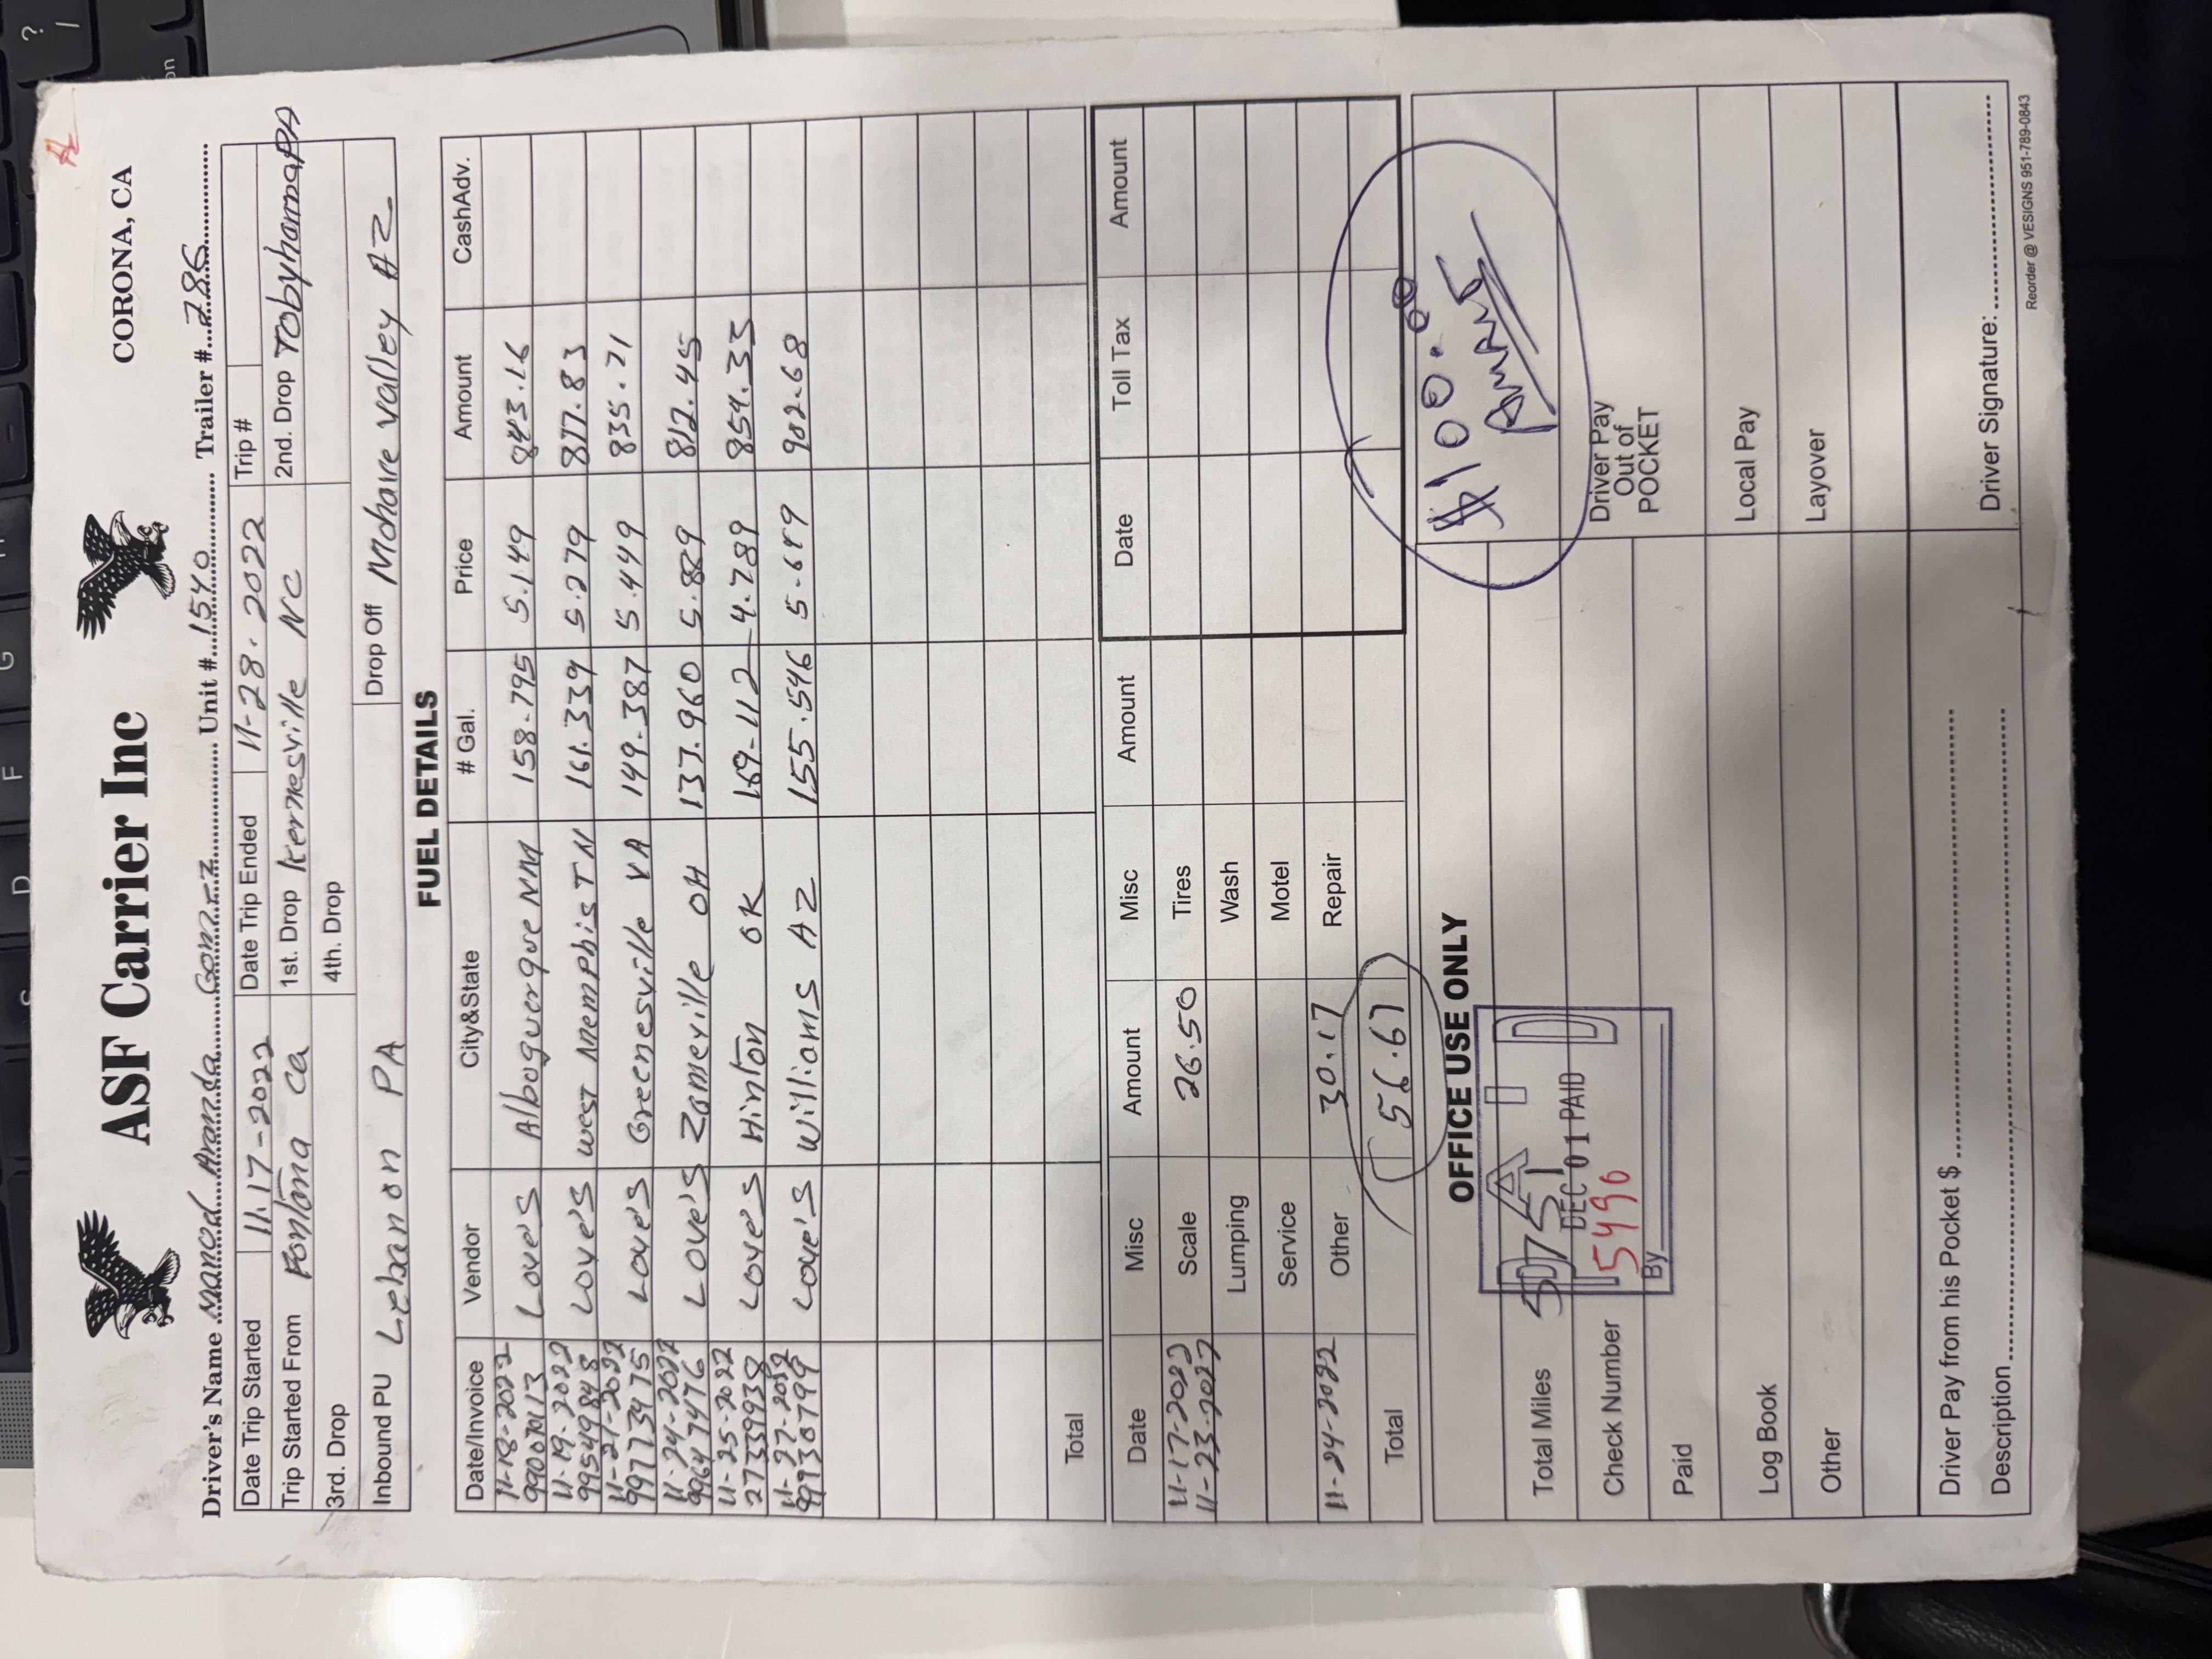 ASF Carrier Inc
CORONA, CA
Driver's Name Manod Aranda Gomez Unit # 1540 Trailer # 786
Date Trip Started 11.17-2022 Date Trip Ended 11-28-2022 Trip #
Trip Started From Fontana ca 1st. Drop Kernesville NC 2nd. Drop Tobyhanna PA
3rd. Drop 4th. Drop
Inbound PU Lebanon PA Drop Off Mohave valley AZ
FUEL DETAILS
Date/Invoice Vendor City&State # Gal. Price Amount CashAdv.
11-18-2022
99007113 Love's Albuquerque NM 158.795 5.149 843.16
11-19-2022
99549848 Love's west Memphis TN 161.339 5.279 877.83
11-21-2022
99773475 Love's Greenesville VA 149.387 5.449 835.71
11-24-2022
99647476 Love's Zamesville OH 137.960 5.889 812.45
11-25-2022
27339938 Love's Hinton OK 169-112 4.789 854.33
11-27-2022
99730799 Love's Williams AZ 155.546 5.649 902.68
Total
Date Misc Amount Misc Amount Date Toll Tax Amount
11-17-2022
11-23-2022 Scale 26.50 Tires
Lumping Wash
Service Motel
11-24-2022 Other 30.17 Repair
Total 56.67
OFFICE USE ONLY
$100.00
PAID
Total Miles 5751
DEC 01 PAID
Check Number 5490
By
Driver Pay
Out of
POCKET
Paid
Log Book
Local Pay
Other
Layover
Driver Pay from his Pocket $
Description
Driver Signature:
Reorder @ VESIGNS 951-789-0843